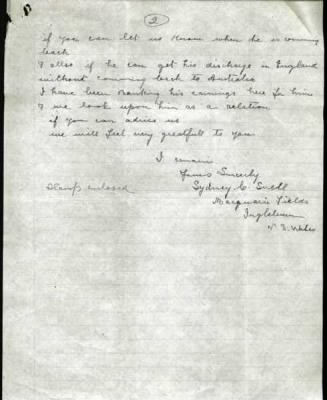 2
if you can let us know when he is coming
back
& allso if he can get his discharge in England
without comeing back to Australia
I have been Banking his earnings here for him
& we look upon him as a relation
if you can advise us
we will feel very greatfull to you
I remain
Yours Sincerly
Sydney C. Snell
Stamp enclosed
Macquarie Fields
Ingleburn
N. S. Wales